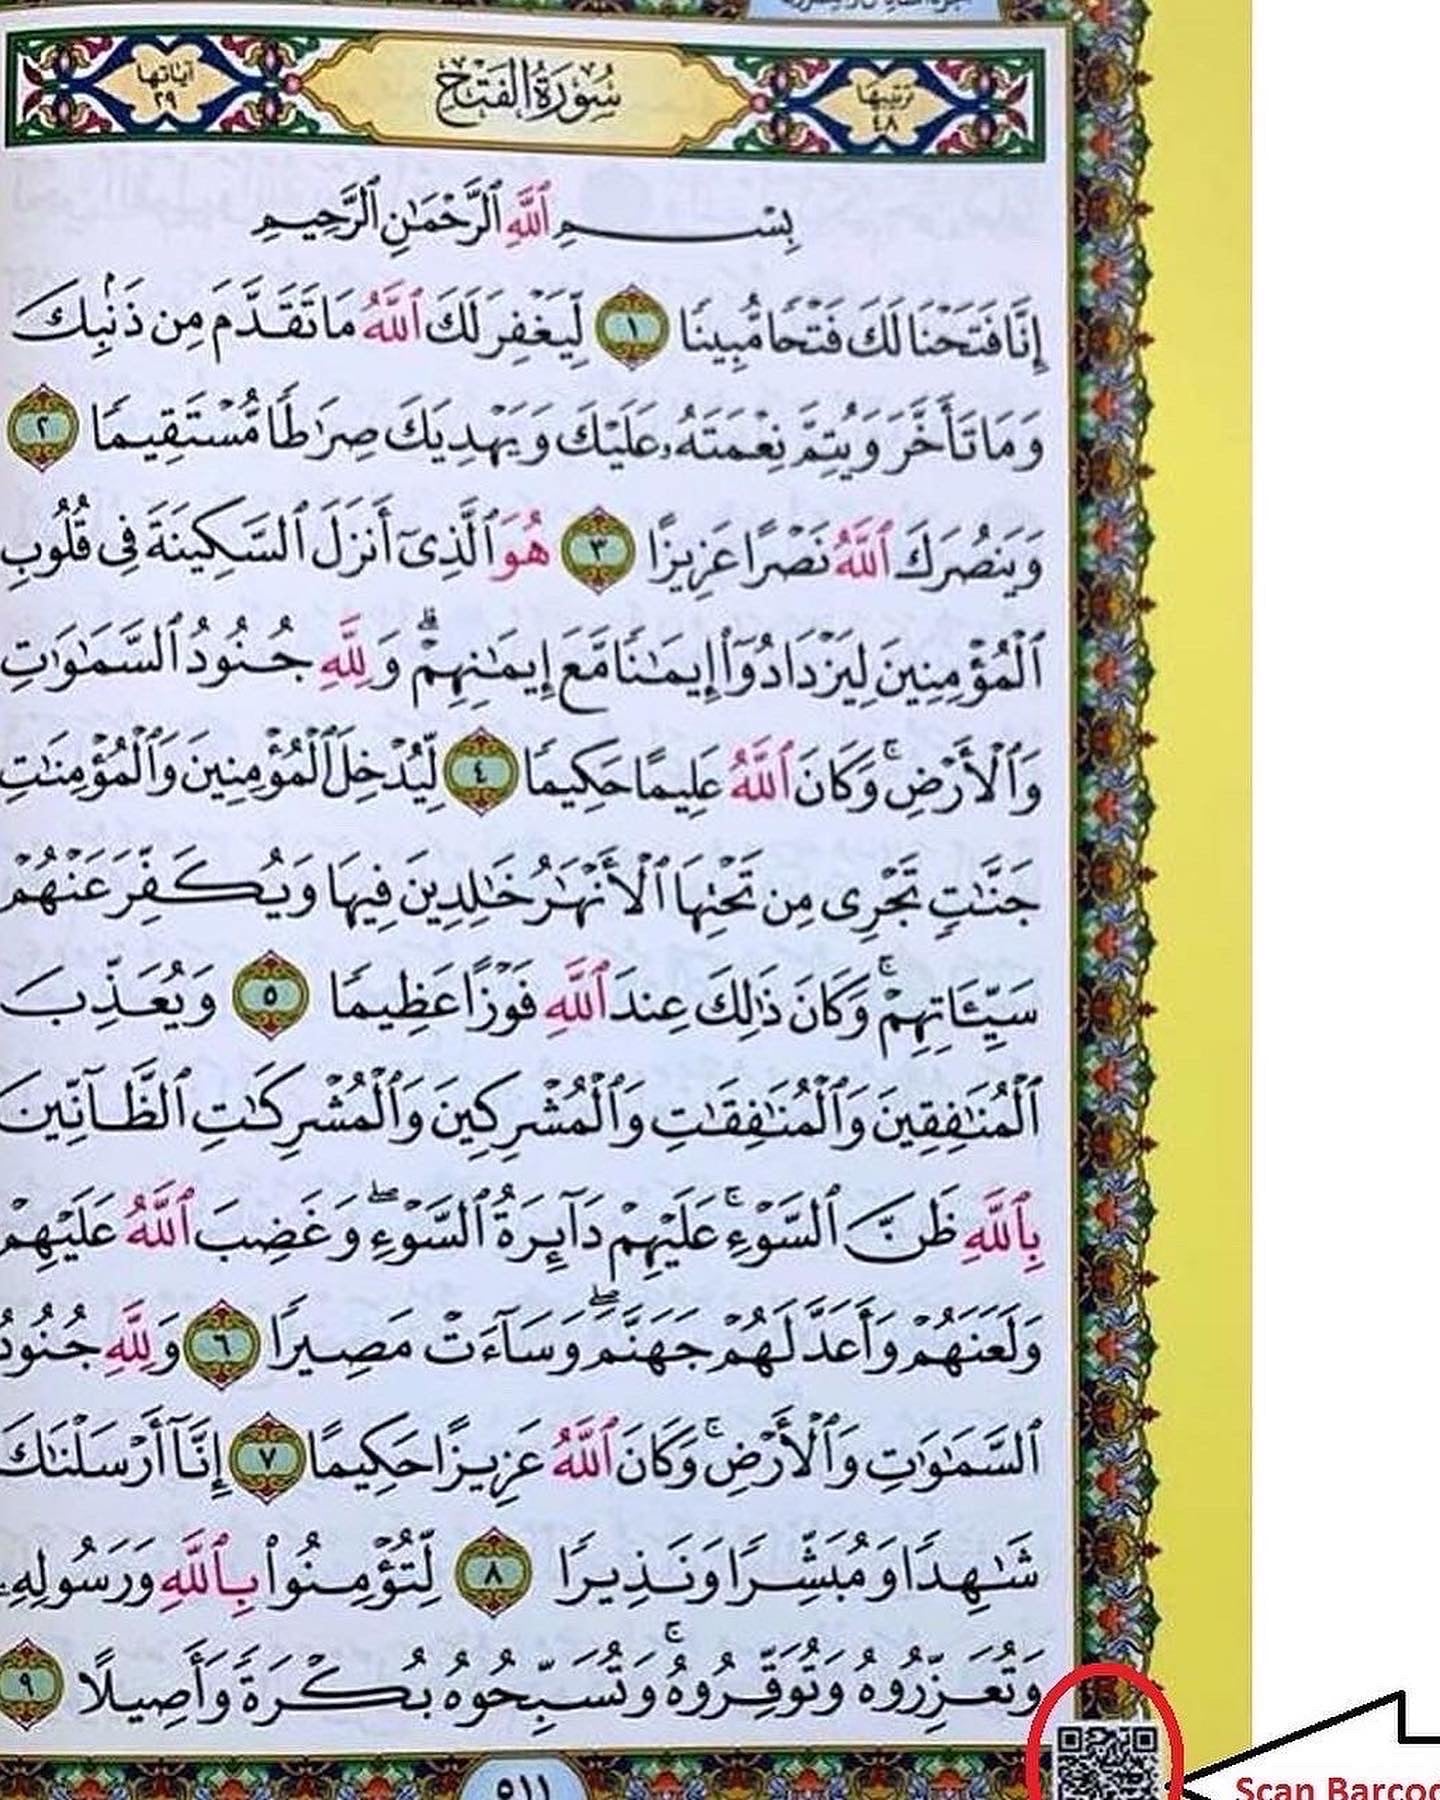 آياتها ٢٩ سُورَةُ الفَتْحِ ترتيبها ٤٨
بِسْمِ ٱللَّهِ ٱلرَّحْمَٰنِ ٱلرَّحِيمِ
إِنَّا فَتَحْنَا لَكَ فَتْحًا مُّبِينًا ١ لِّيَغْفِرَ لَكَ ٱللَّهُ مَا تَقَدَّمَ مِن ذَنۢبِكَ
وَمَا تَأَخَّرَ وَيُتِمَّ نِعْمَتَهُۥ عَلَيْكَ وَيَهْدِيَكَ صِرَٰطًا مُّسْتَقِيمًا ٢
وَيَنصُرَكَ ٱللَّهُ نَصْرًا عَزِيزًا ٣ هُوَ ٱلَّذِىٓ أَنزَلَ ٱلسَّكِينَةَ فِى قُلُوبِ
ٱلْمُؤْمِنِينَ لِيَزْدَادُوٓا۟ إِيمَٰنًا مَّعَ إِيمَٰنِهِمْ ۗ وَلِلَّهِ جُنُودُ ٱلسَّمَٰوَٰتِ
وَٱلْأَرْضِ ۚ وَكَانَ ٱللَّهُ عَلِيمًا حَكِيمًا ٤ لِّيُدْخِلَ ٱلْمُؤْمِنِينَ وَٱلْمُؤْمِنَٰتِ
جَنَّٰتٍ تَجْرِى مِن تَحْتِهَا ٱلْأَنْهَٰرُ خَٰلِدِينَ فِيهَا وَيُكَفِّرَ عَنْهُمْ
سَيِّـَٔاتِهِمْ ۚ وَكَانَ ذَٰلِكَ عِندَ ٱللَّهِ فَوْزًا عَظِيمًا ٥ وَيُعَذِّبَ
ٱلْمُنَٰفِقِينَ وَٱلْمُنَٰفِقَٰتِ وَٱلْمُشْرِكِينَ وَٱلْمُشْرِكَٰتِ ٱلظَّآنِّينَ
بِٱللَّهِ ظَنَّ ٱلسَّوْءِ ۚ عَلَيْهِمْ دَآئِرَةُ ٱلسَّوْءِ ۖ وَغَضِبَ ٱللَّهُ عَلَيْهِمْ
وَلَعَنَهُمْ وَأَعَدَّ لَهُمْ جَهَنَّمَ ۖ وَسَآءَتْ مَصِيرًا ٦ وَلِلَّهِ جُنُودُ
ٱلسَّمَٰوَٰتِ وَٱلْأَرْضِ ۚ وَكَانَ ٱللَّهُ عَزِيزًا حَكِيمًا ٧ إِنَّآ أَرْسَلْنَٰكَ
شَٰهِدًا وَمُبَشِّرًا وَنَذِيرًا ٨ لِّتُؤْمِنُوا۟ بِٱللَّهِ وَرَسُولِهِۦ
وَتُعَزِّرُوهُ وَتُوَقِّرُوهُ ۚ وَتُسَبِّحُوهُ بُكْرَةً وَأَصِيلًا ٩
٥١١
Scan